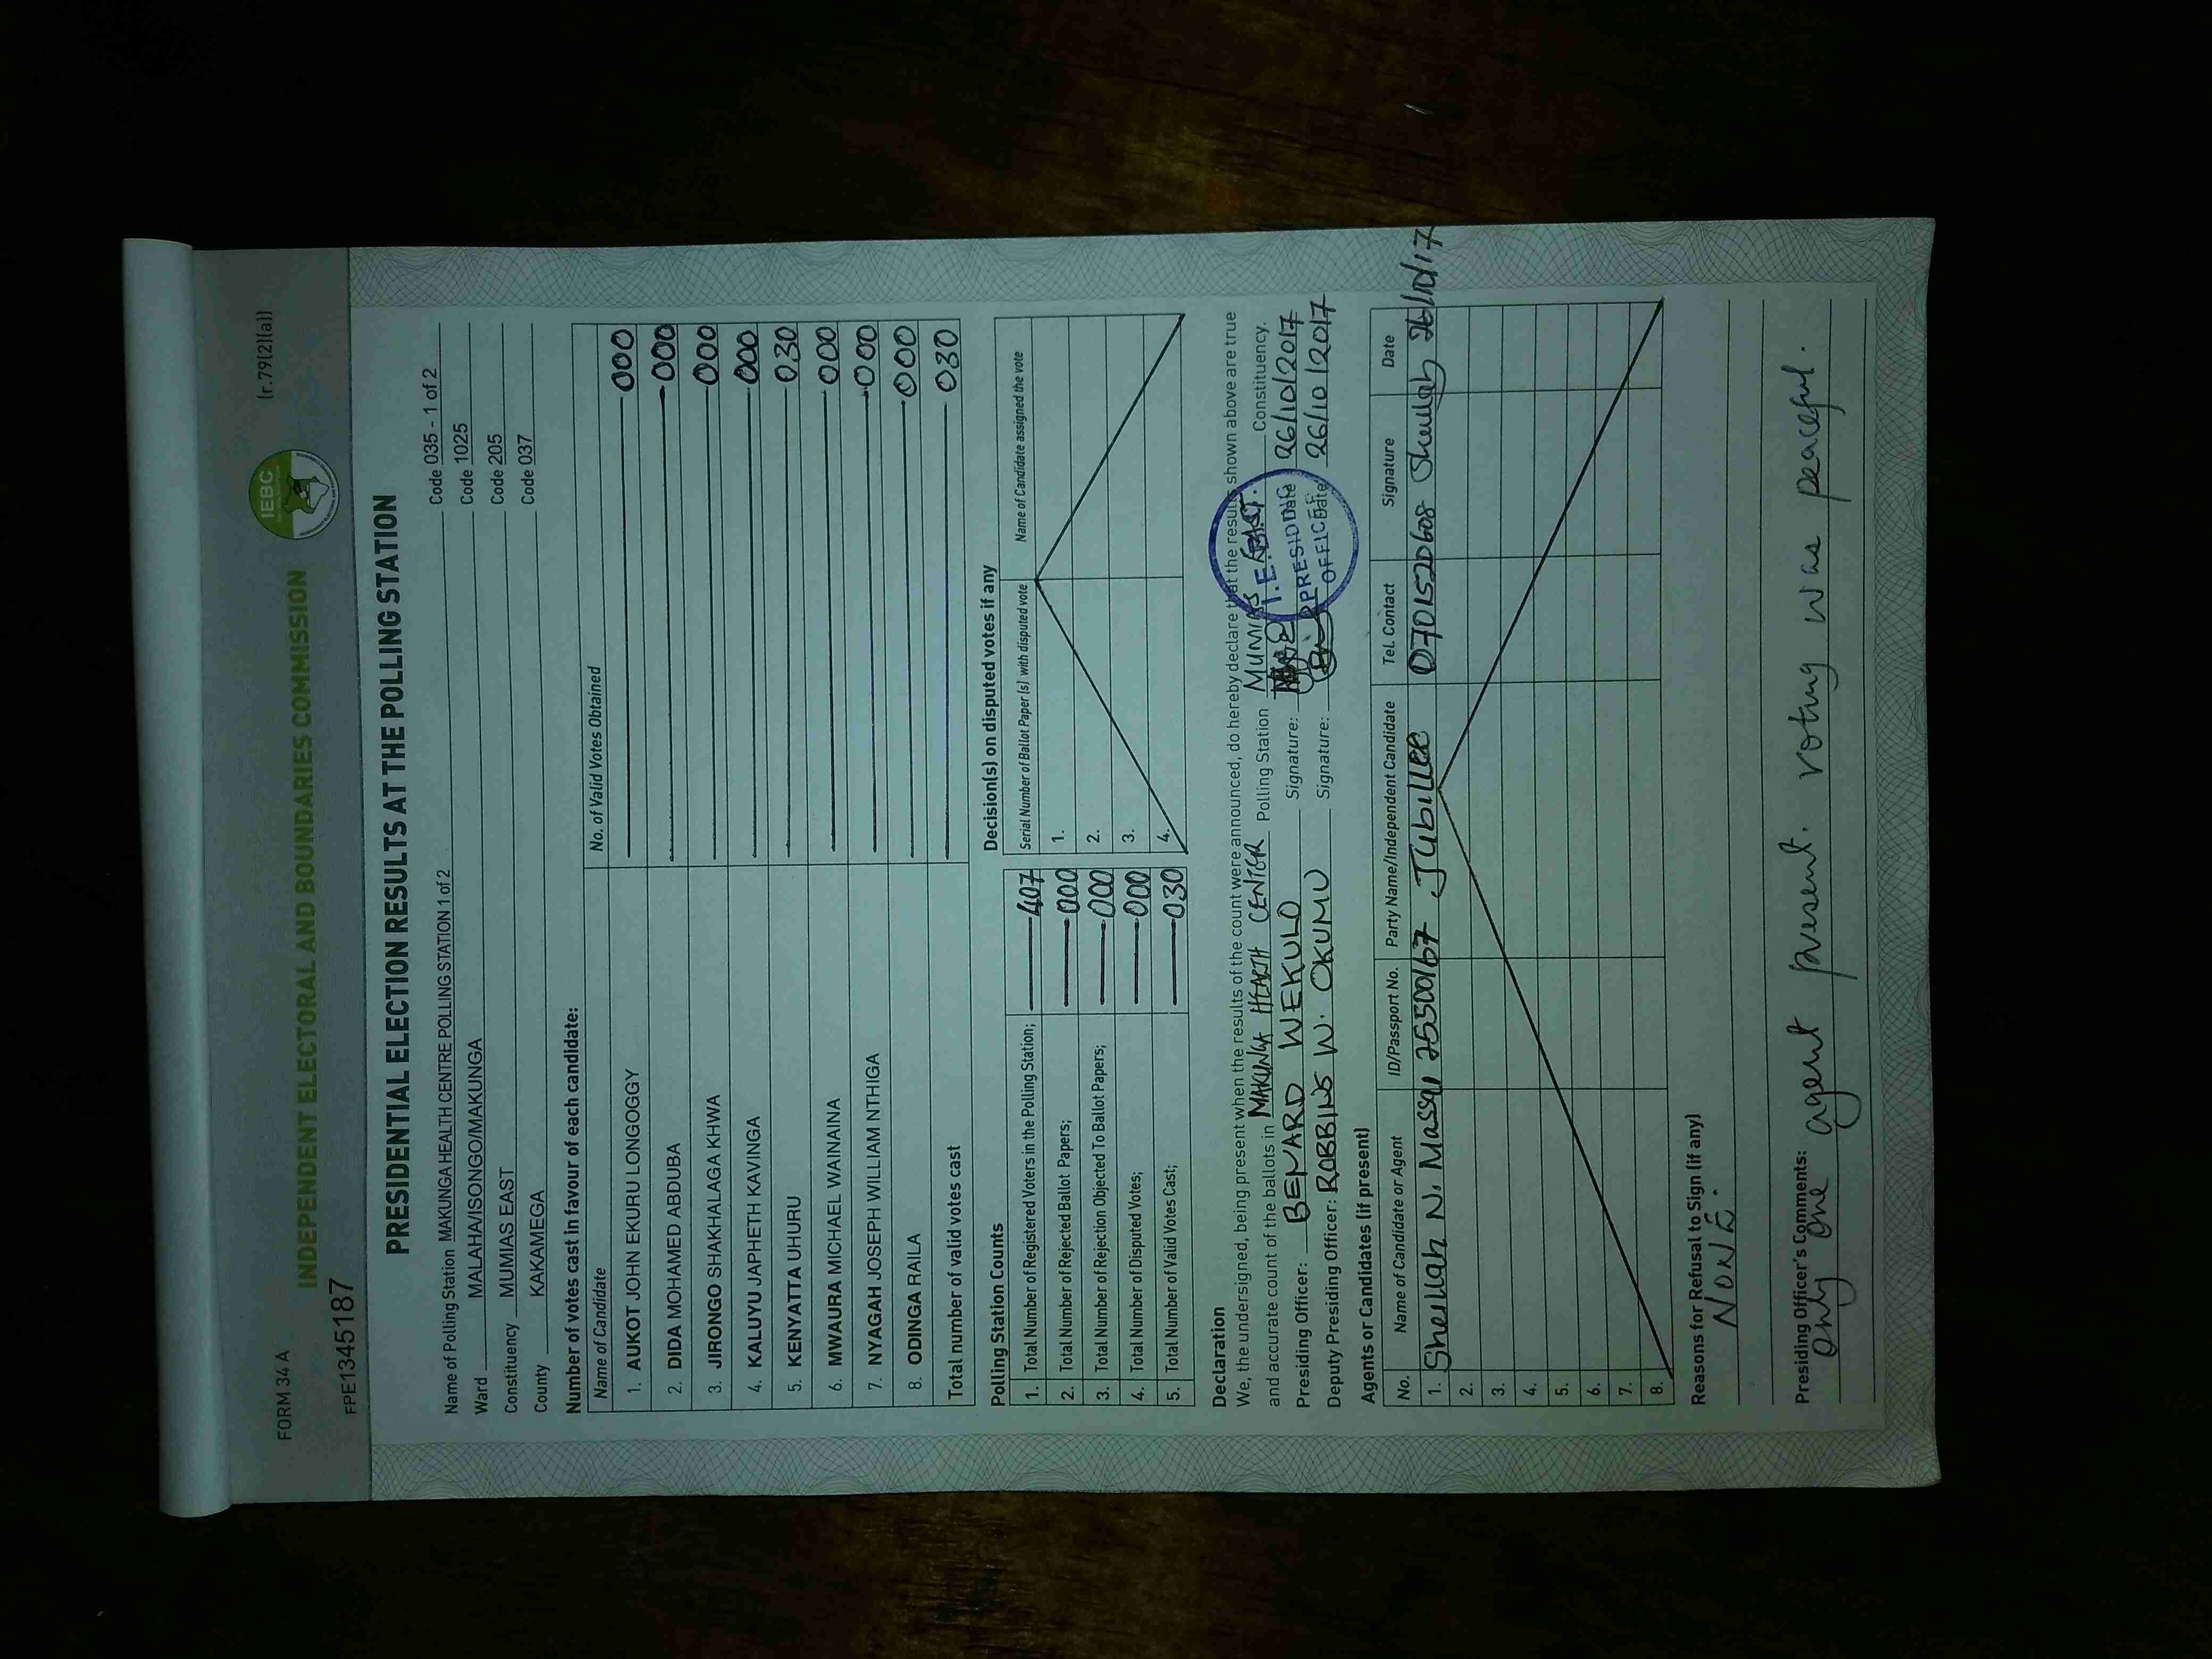 FORM 34 A
(r.79(2)(a))
IEBC
INDEPENDENT ELECTORAL AND BOUNDARIES COMMISSION
FPE1345187
PRESIDENTIAL ELECTION RESULTS AT THE POLLING STATION
Name of Polling Station MAKUNGA HEALTH CENTRE POLLING STATION 1 of 2 Code 035 - 1 of 2
Ward MALAHA/ISONGO/MAKUNGA Code 1025
Constituency MUMIAS EAST Code 205
County KAKAMEGA Code 037
Number of votes cast in favour of each candidate:
Name of Candidate No. of Valid Votes Obtained
1. AUKOT JOHN EKURU LONGOGGY 000
2. DIDA MOHAMED ABDUBA 000
3. JIRONGO SHAKHALAGA KHWA 000
4. KALUYU JAPHETH KAVINGA 000
5. KENYATTA UHURU 030
6. MWAURA MICHAEL WAINAINA 000
7. NYAGAH JOSEPH WILLIAM NTHIGA 000
8. ODINGA RAILA 000
Total number of valid votes cast 030
Polling Station Counts
1. Total Number of Registered Voters in the Polling Station; 407
2. Total Number of Rejected Ballot Papers; 000
3. Total Number of Rejection Objected To Ballot Papers; 000
4. Total Number of Disputed Votes; 000
5. Total Number of Valid Votes Cast; 030
Decision(s) on disputed votes if any
Serial Number of Ballot Paper (s) with disputed vote Name of Candidate assigned the vote
1.
2.
3.
4.
Declaration
We, the undersigned, being present when the results of the count were announced, do hereby declare that the results shown above are true
and accurate count of the ballots in MAKUNGA HEALTH CENTER Polling Station MUMIAS EAST. Constituency.
Presiding Officer: BENARD WEKULO Signature: Date 26/10/2017
Deputy Presiding Officer: ROBBINS W. OKUMU Signature: Date 26/10/2017
PRESIDING
OFFICER
Agents or Candidates (if present)
No. Name of Candidate or Agent ID/Passport No. Party Name/Independent Candidate Tel. Contact Signature Date
1. Sheillah N. Massai 25500167 Jubillee 0701520608 26/10/17
2.
3.
4.
5.
6.
7.
8.
Reasons for Refusal to Sign (if any)
NONE.
Presiding Officer's Comments:
Only one agent present. voting was peaceful.